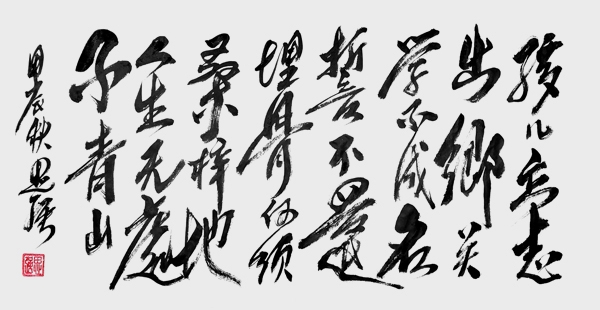 孩儿立志
出鄉关
学不成名
誓不還
埋骨何须
桑梓地
人生无處
不青山
甲辰秋思